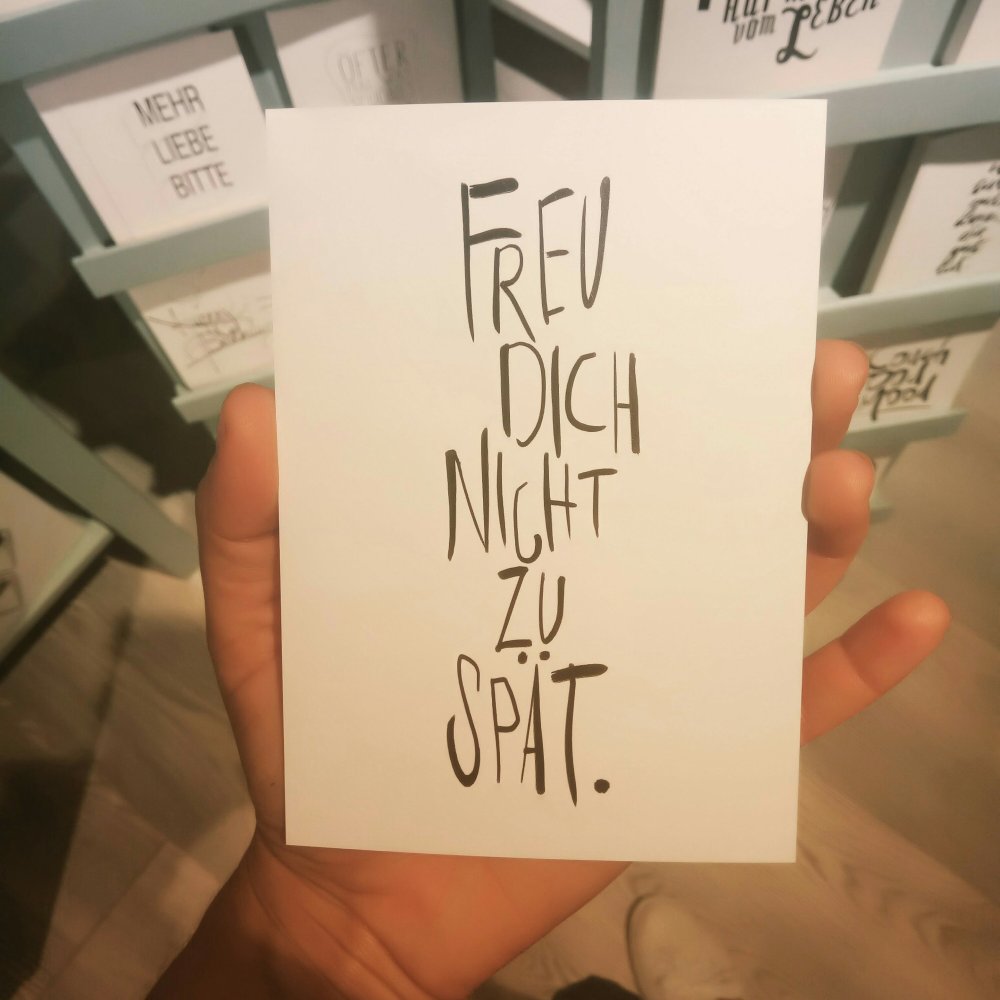 FREU
DICH
NICHT
ZU
SPÄT.
MEHR
LIEBE
BITTE
ÖFTER
vom LEBEN